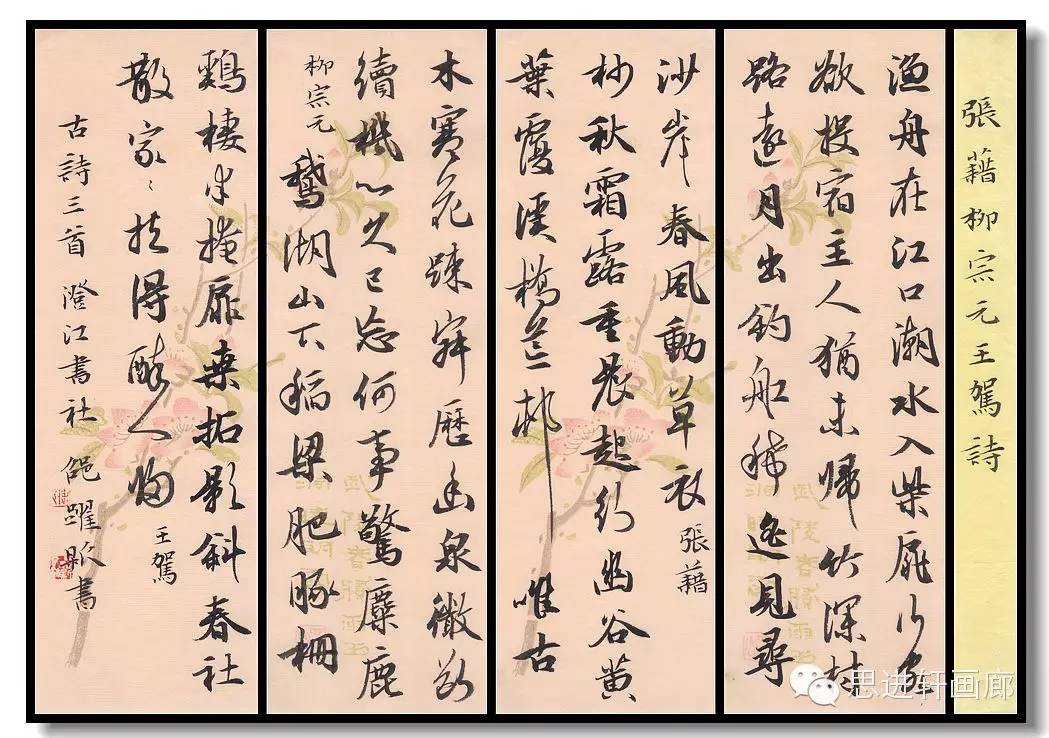 張藉柳宗元王駕詩
漁舟在江口潮水入柴扉行客
欲投宿主人猶未歸竹深村
路遠月出釣船稀遙見尋
沙岸春風動草衣 張藉
杪秋霜露重晨起行幽谷黄
葉覆溪橋荒邨唯古
木寒花疎寂歷幽泉微斷
續機心久已忘何事驚麋鹿
柳宗元 鵝湖山下稻梁肥豚栅
鷄棲半掩扉桑柘影斜春社
散家〻扶得醉人歸 王駕
古詩三首 澄江書社 躍書
思进轩画廊